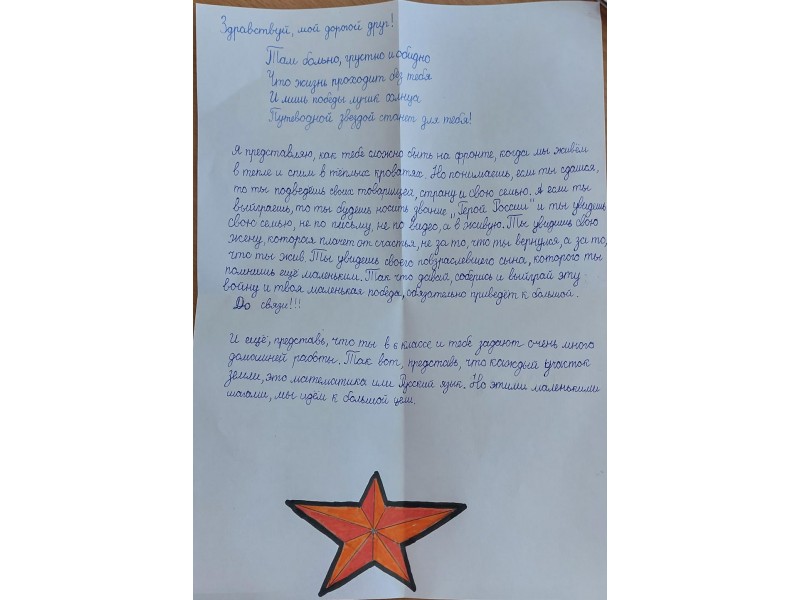 Здравствуй, мой дорогой друг!
Там больно, грустно и обидно
Что жизнь проходит без тебя
И лишь победы лучик солнца
Путеводной звездой станет для тебя!
Я представляю, как тебе сложно быть на фронте, когда мы живём
в тепле и спим в тёплых кроватях. Но понимаешь, если ты сдашся,
то ты подведёшь своих товарищей, страну и свою семью. А если ты
выйграешь, то ты будешь носить звание "Герой России" и ты увидишь
свою семью, не по письму, не по видео, а в живую. Ты увидишь свою
жену, которая плачет от счастья, не за то, что ты вернулся, а за то,
что ты жив. Ты увидишь своего повзраслевшего сына, которого ты
помнишь ещё маленьким. Так что давай, соберись и выйграй эту
войну и твоя маленькая победа, обязательно приведёт к большой.
До связи!!!
И ещё, представь, что ты в 6 классе и тебе задают очень много
домашней работы. Так вот, представь, что каждый участок
земли, это математика или Русский язык. Но этими маленькими
шагами, мы идём к большой цели.